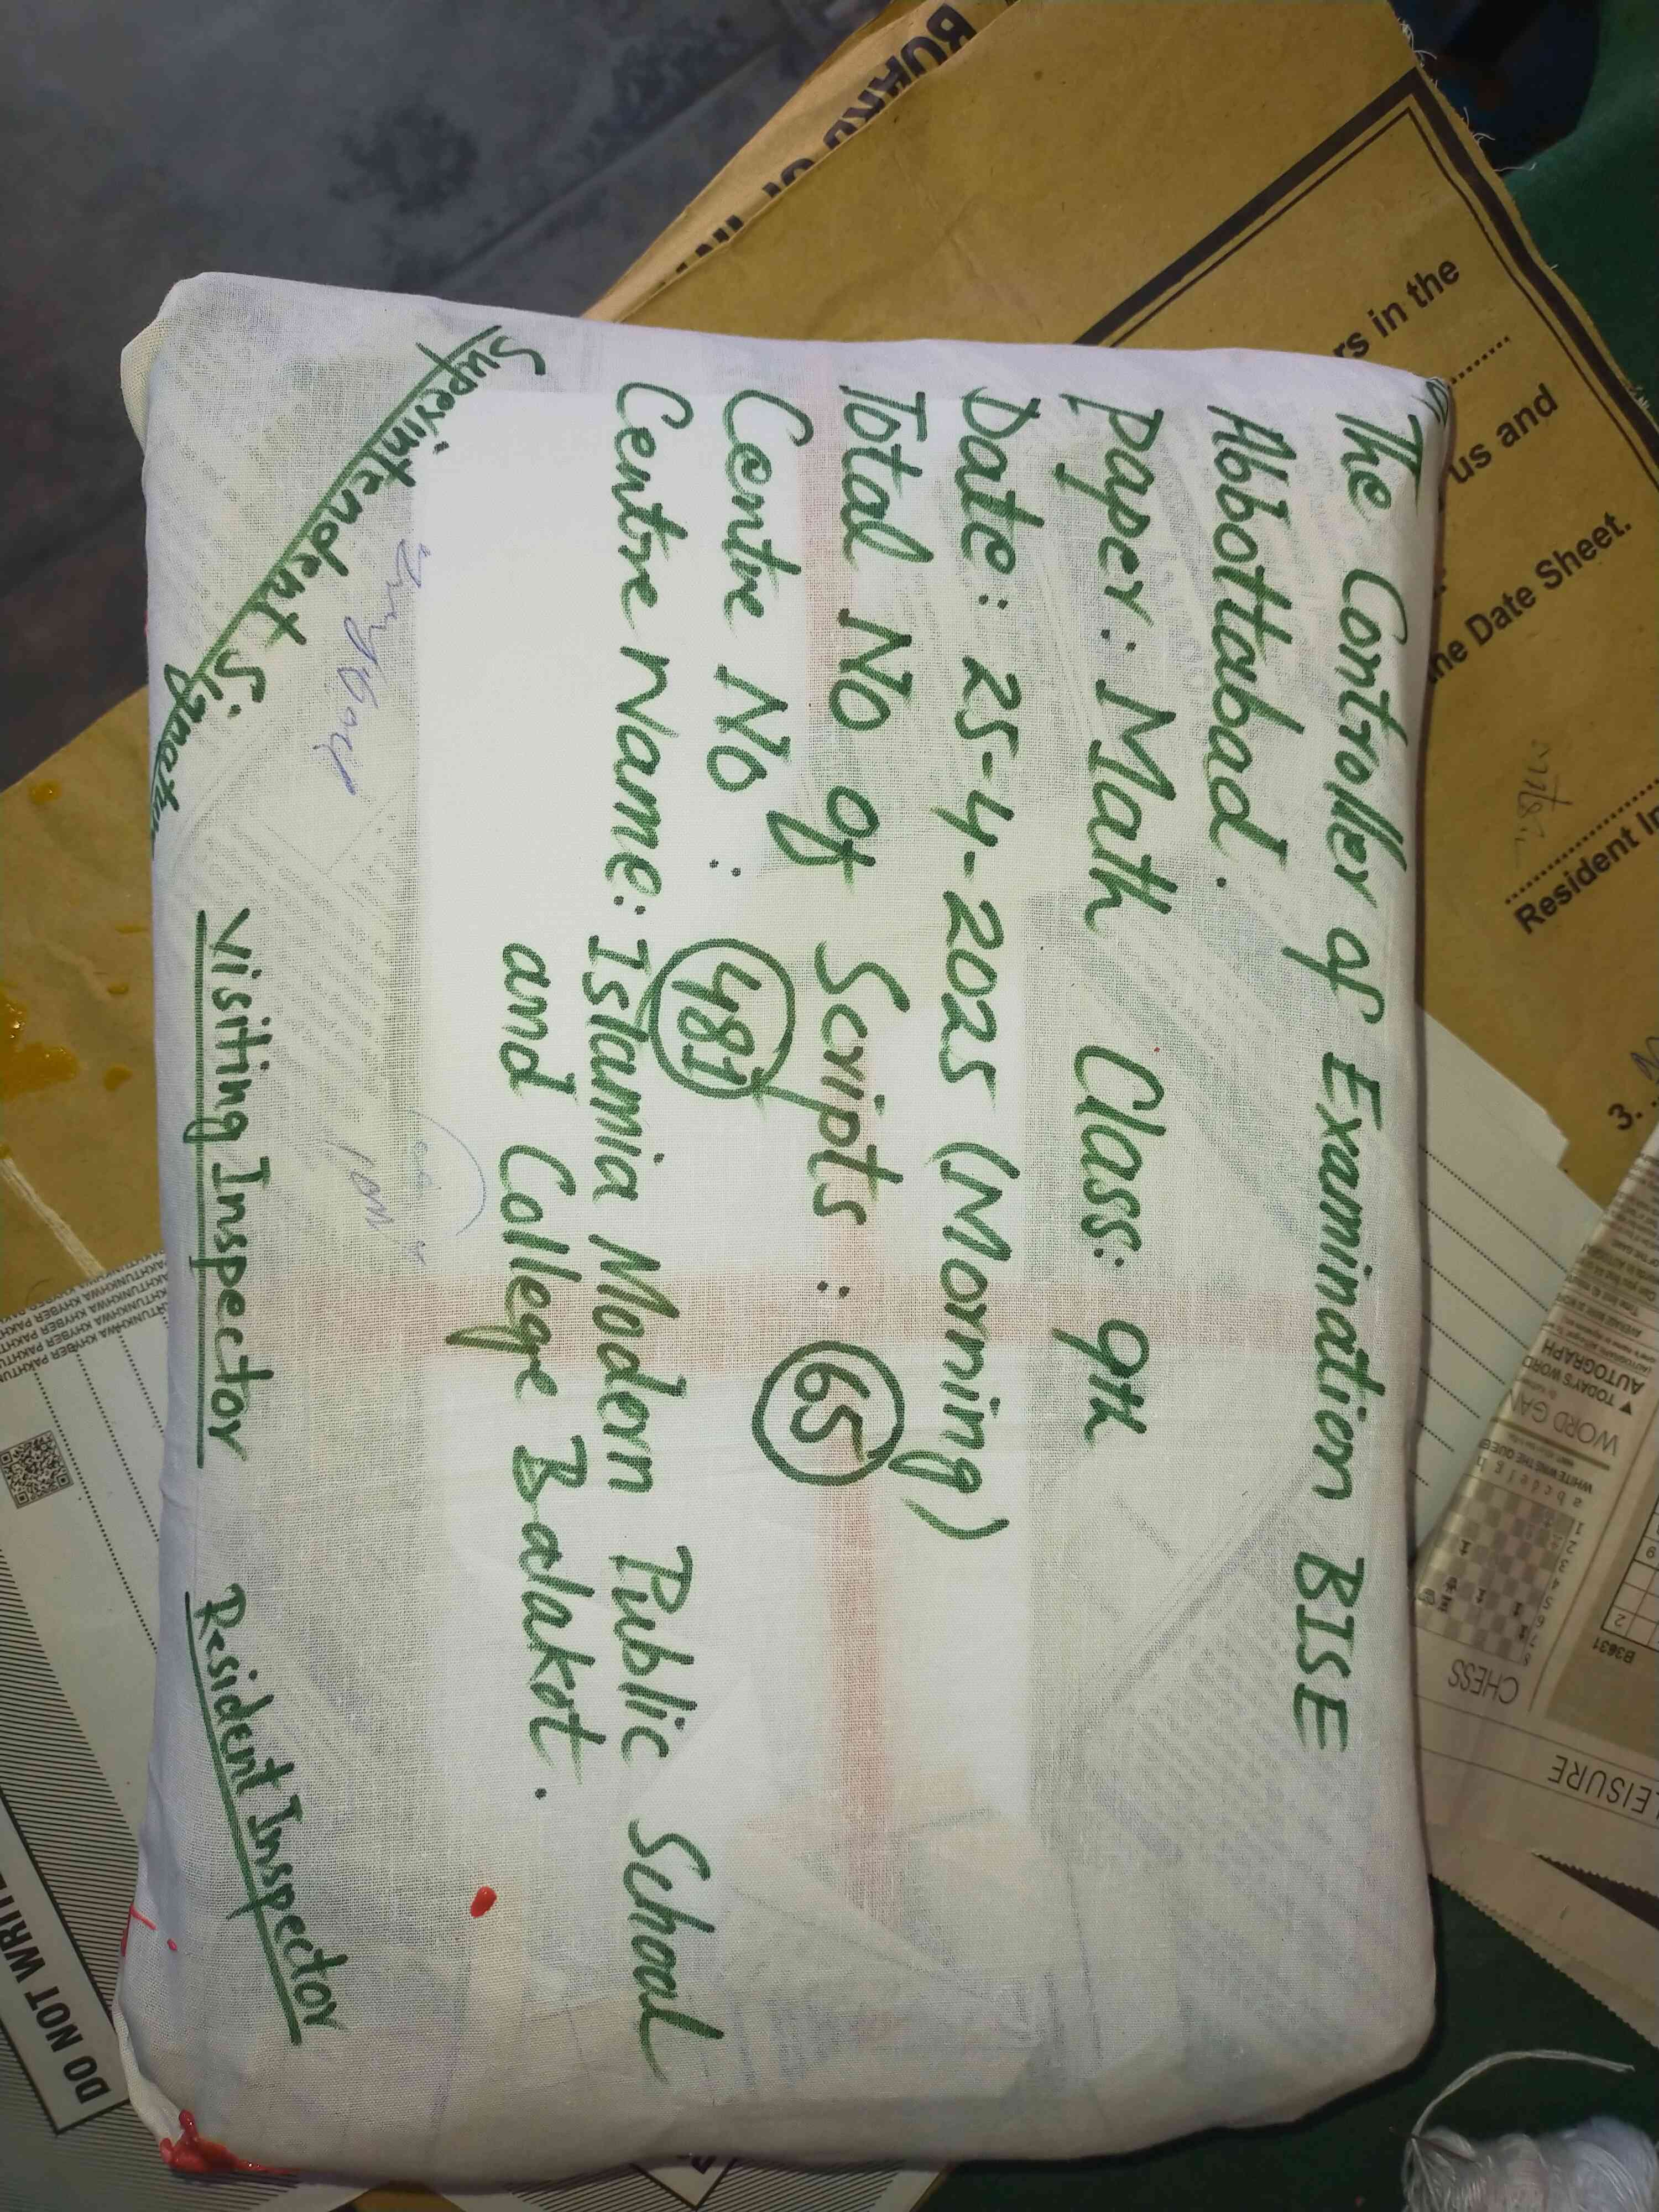 The Controller of Examination BISE
Abbottabad.
Paper: Math Class: 9th
Date: 25-4-2025 (Morning)
Total No of Scripts: 65
Centre No: 481
Centre Name: Islamia Modern Public School
and College Balakot.
Superintendent Signature
Visiting Inspector
Resident Inspector
BOARD OF IN
rs in the
us and
the Date Sheet.
Resident In
3.
TODAY'S WORD
AUTOGRAPH
WORD GAM
CHESS
LEISURE
B3631
DO NOT WRITE